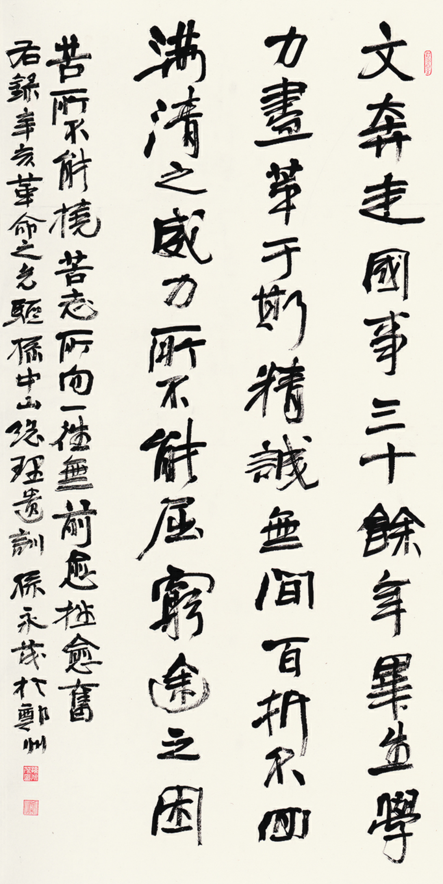 文奔走國事三十餘年畢生學
力盡萃于斯精誠無間百折不回
滿清之威力所不能屈窮途之困
苦所不能撓苦志所向一往無前愈挫愈奮
右錄辛亥革命之先驅孫中山總理遺訓 孫永茂於鄭州